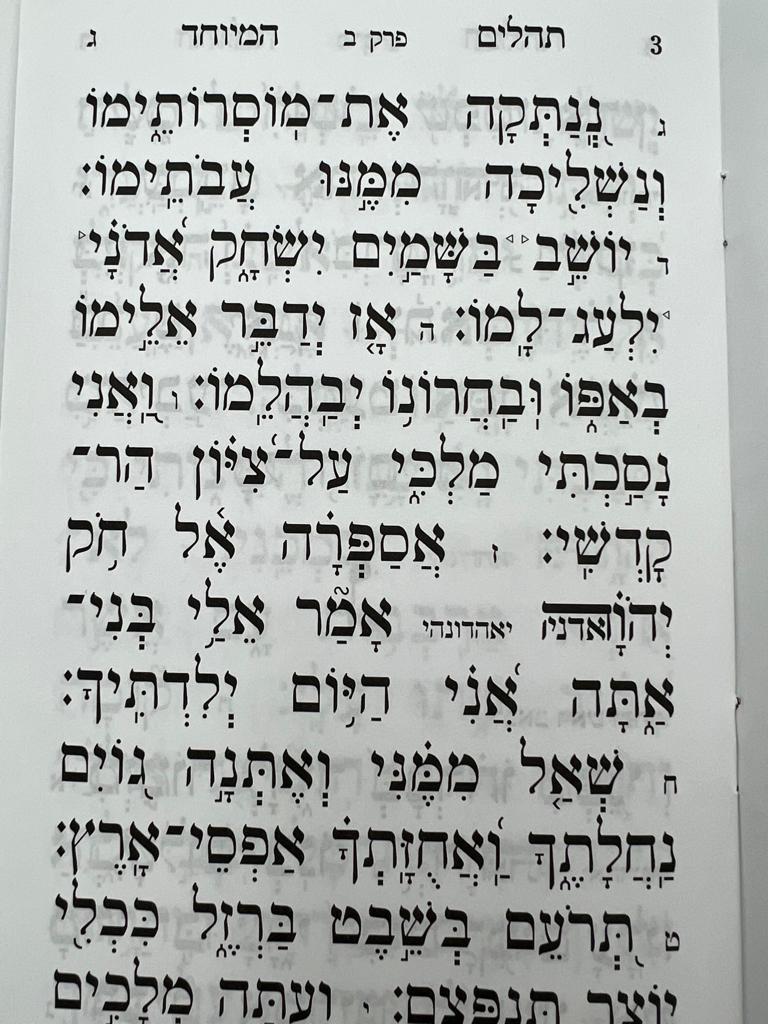 3 תהלים פרק ב המיוחד ג
ג נְֽ֭נַתְּקָה אֶת־מֽוֹסְרוֹתֵ֑ימוֹ
וְנַשְׁלִ֖יכָה מִמֶּ֣נּוּ עֲבֹתֵֽימוֹ׃
ד יוֹשֵׁ֣ב בַּשָּׁמַ֣יִם יִשְׂחָ֑ק אֲ֝דֹנָ֗י
יִלְעַג־לָֽמוֹ׃ ה אָ֤ז יְדַבֵּ֣ר אֵלֵ֣ימוֹ
בְאַפּ֑וֹ וּֽבַחֲרוֹנ֥וֹ יְבַהֲלֵֽמוֹ׃ ו וַ֭אֲנִי
נָסַ֣כְתִּי מַלְכִּ֑י עַל־צִ֝יּ֗וֹן הַר־
קָדְשִֽׁי׃ ז אֲסַפְּרָ֗ה אֶ֫ל חֹ֥ק
יְהֹוָ֗ה אדני יאהדונהי אָמַ֘ר אֵלַ֥י בְּנִי־
אַ֑תָּה אֲ֝נִ֗י הַיּ֥וֹם יְלִדְתִּֽיךָ׃
ח שְׁאַ֤ל מִמֶּ֗נִּי וְאֶתְּנָ֣ה ג֭וֹיִם
נַחֲלָתֶ֑ךָ וַ֝אֲחֻזָּתְךָ֗ אַפְסֵי־אָֽרֶץ׃
ט תְּ֭רֹעֵם בְּשֵׁ֣בֶט בַּרְזֶ֑ל כִּכְלִ֖י
יוֹצֵ֣ר תְּנַפְּצֵֽם׃ י וְ֭עַתָּה מְלָכִ֣ים